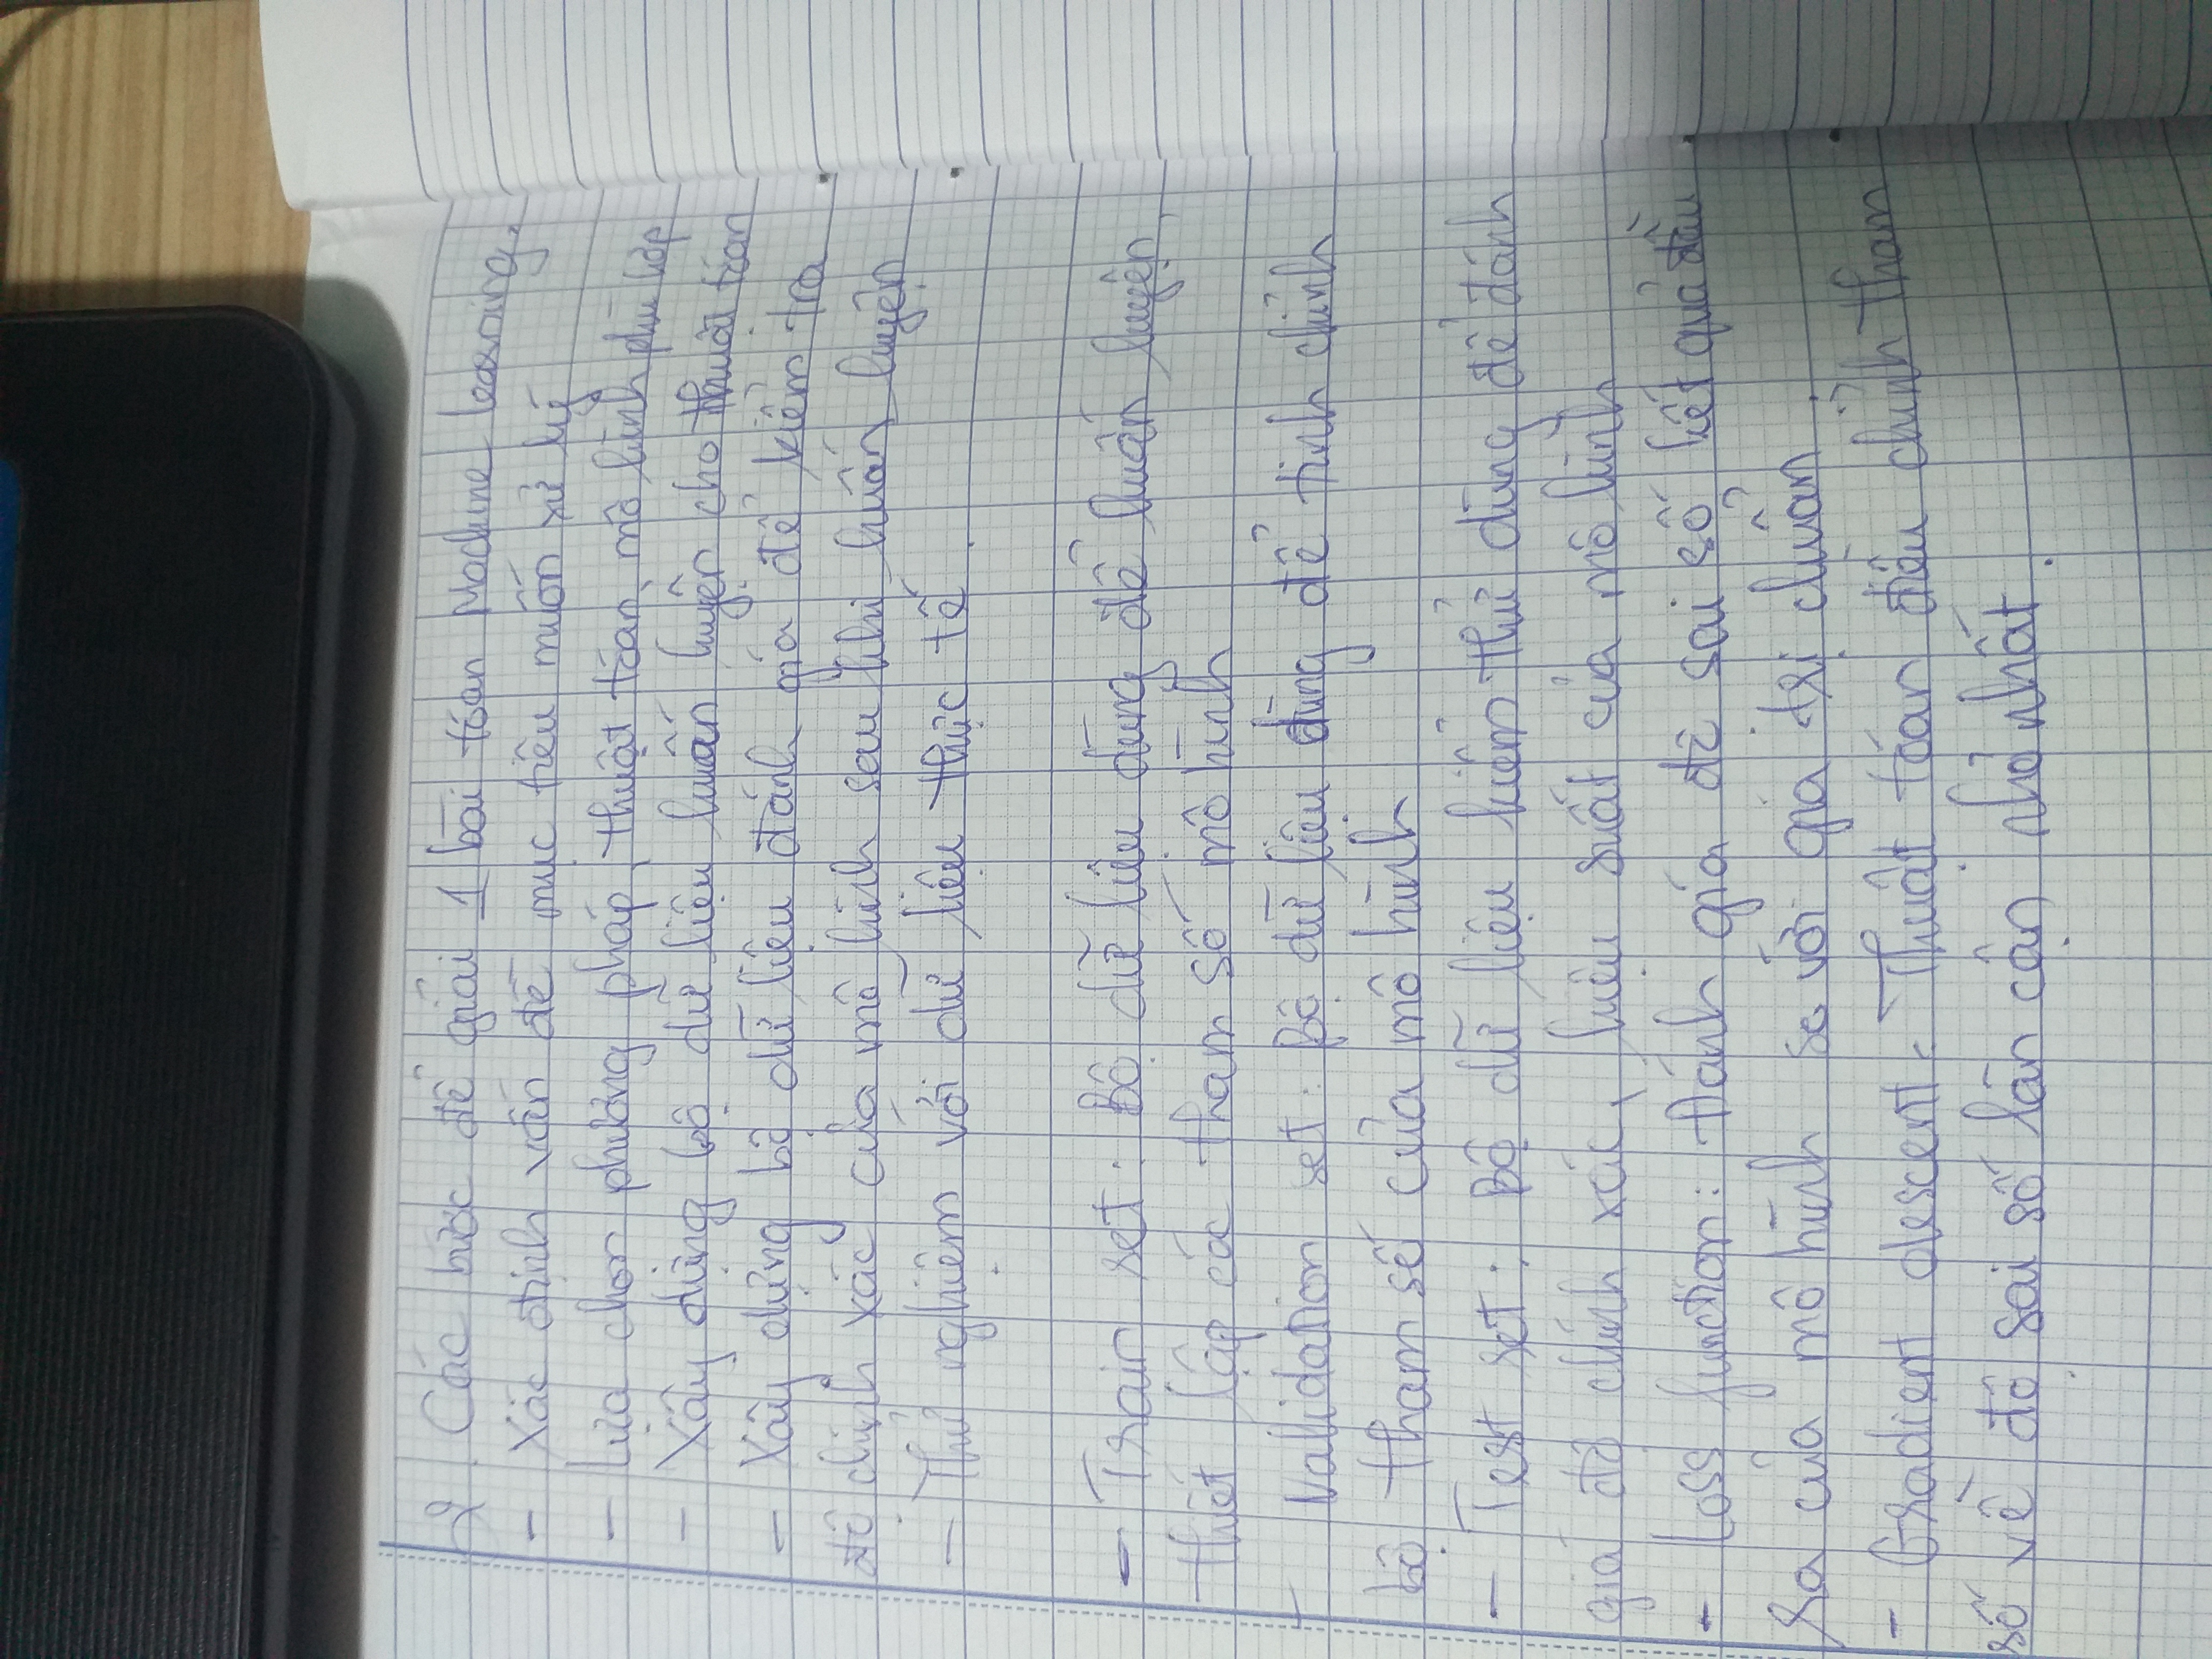 2. Các bước để giải 1 bài toán Machine learning.
- Xác định vấn đề mục tiêu muốn xử lý
- Lựa chọn phương pháp, thuật toán, mô hình phù hợp
- Xây dựng bộ dữ liệu huấn luyện cho thuật toán
- Xây dựng bộ dữ liệu đánh giá để kiểm tra
độ chính xác của mô hình sau khi huấn luyện
- Thử nghiệm với dữ liệu thực tế.
- Train set: Bộ dữ liệu dùng để huấn luyện,
thiết lập các tham số mô hình
- Validation set: Bộ dữ liệu dùng để tinh chỉnh
bộ tham số của mô hình
- Test set: Bộ dữ liệu kiểm thử dùng để đánh
giá độ chính xác, hiệu suất của mô hình
- Loss function: Đánh giá độ sai số kết quả đầu
ra của mô hình so với giá trị chuẩn.
- Gradient descent: Thuật toán điều chỉnh tham
số về độ sai số lân cận nhỏ nhất.